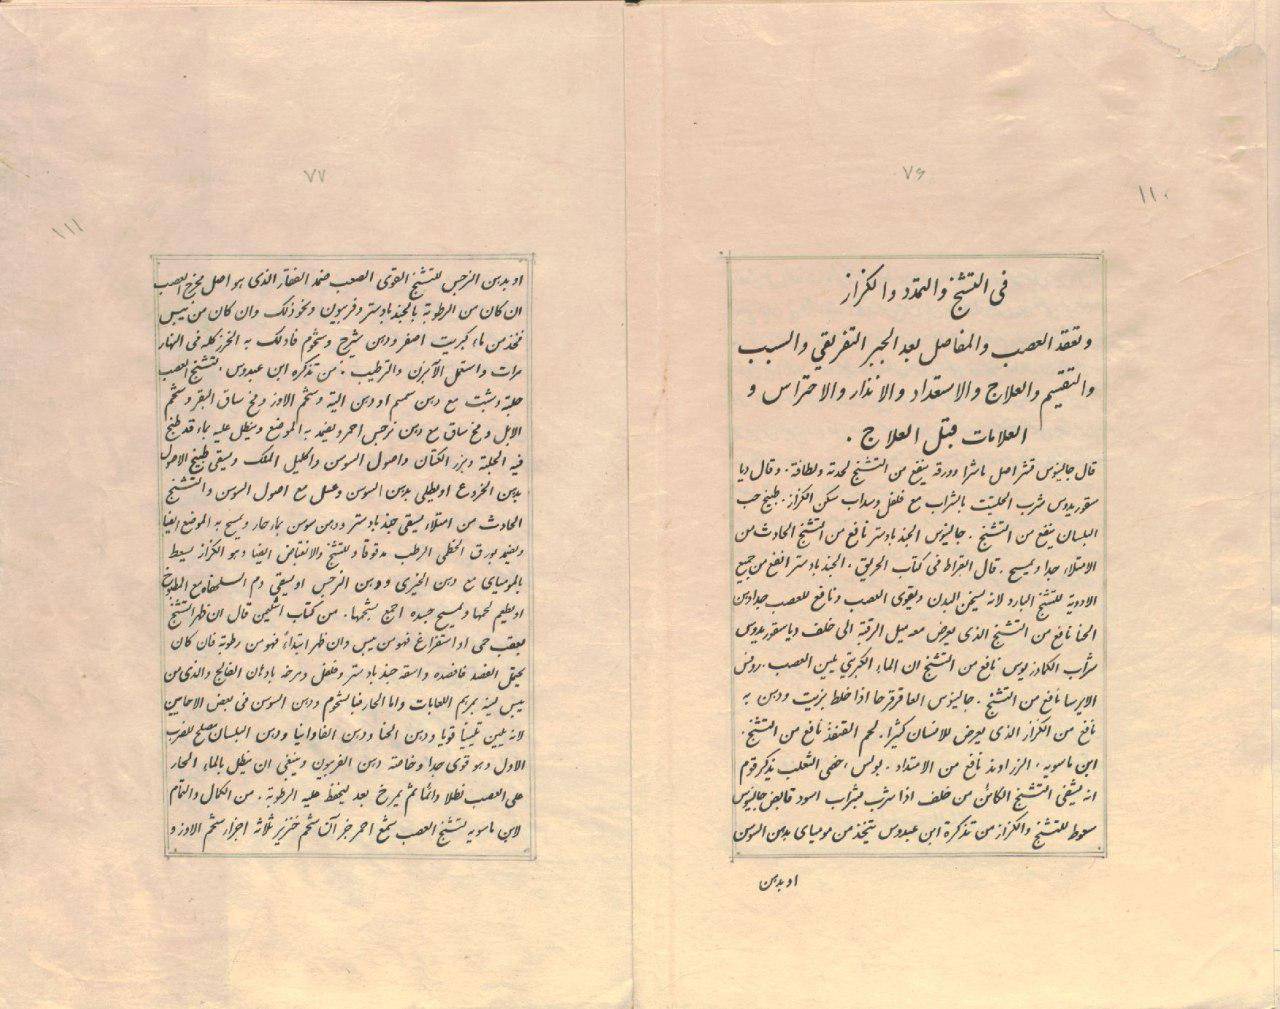 ۷۶
۱۱۰
فى التشنج والتمدد والكزاز
وتعقد العصب والمفاصل بعد الجبر التفريقي والسبب
والتقسيم والعلاج والاستعداد والانذار والاحتراس و
العلامات قبل العلاج .
قال جالينوس قشر اصل باشرا وورقه ينفع من التشنج لحدته ولطافة . وقال ديا
سقوريدوس شرب الحلتيت بالشراب مع فلفل وسداب سكن الكزاز . طبيخ حب
البلسان ينفع من التشنج . جالينوس الجندبادستر نافع من التشنج الحادث من
الامتلاء جدا ويمسح . قال القراط فى كتاب الحريق . الجندبادستر انفع من جميع
الادوية للتشنج البارد لانه يسخن البدن ويقوى العصب ونافع للعصب جدا دهن
الحنا نافع من التشنج الذى يعرض معه ميل الرقبة الى خلف دياسقوريدوس
شراب الكمادريوس نافع من التشنج ان الماء الكبريتي يلين العصب . روفس
الايرسا نافع من التشنج . جالينوس العاقرقرحا اذا خلط بزيت ودهن به
نافع من الكزاز الذى يعرض للانسان كثيرا . لحم القنفذ نافع من التشنج .
ابن ماسويه . الزراوند نافع من الامتداد . بولس . خصى الثعلب يذكر قوم
انه يشفى التشنج الكائن من خلف اذا شرب بشراب اسود قابض جالينوس
سعوط للتشنج والكزاز من تذكرة ابن عبدوس يتخذ من موميا
ى بدهن السوسن
او بدهن
۷۷
۱۱۱
او بدهن النرجس للتشنج القوى الصعب ضمد الفقار الذى هو اصل مخرج العصب
ان كان من الرطوبة بالجندبادستر وفربيون ونحو ذلك وان كان من يبس
فخذ من ماء كبريت اصفر ودهن شيرج وشحوم فادلك به الخرز كله فى النهار
مرات واستعمل الآبزن والترطيب . من تذكرة ابن عبدوس . لتشنج العصب
حلبة وشبت مع دهن سمسم او دهن الية وشحم الاوز ومخ ساق البقر وشحم
الابل ومخ ساق مع دهن نرجس احمر ويضمد به الموضع وينطل عليه بماء قد طبخ
فيه الحلبة وبزر الكتان واصول السوسن واكليل الملك ويسقى طبيخ الاصول
بدهن الخروع او يطلى بدهن السوسن وعسل مع اصول السوسن والتشنج
الحادث من امتلاء يسقى جندبادستر ودهن سوسن بماء حار ويمسح به الموضع ايضا
ويضمد بورق الخطمى الرطب مدقوقا وللتشنج والانقباض ايضا وهو الكزاز يسعط
بالمومياى مع دهن الخيرى ودهن النرجس او يسقى دم السلحفاة مع المطبوخ
او يطعم لحمها ويمسح جسده اجمع بشحمها . من كتاب قال ان ظهر التشنج
بعقب حمى او استفراغ فهو من يبس وان ظهر ابتداءً فهو من رطوبة فان كان
يحتمل الفصد فافصده واسقه جندبادستر وفلفل ومرخه بادهان الفالج والذى من
يبس لينه بمرهم اللعابات واما الحار فبالشحوم ودهن السوسن فى بعض الاحايين
لانه يلين تليينا قويا ودهن الحنا ودهن الفاوانيا ودهن البلسان يصلح للضرب
الاول وهو قوى جدا وخاصة دهن الفربيون وينبغى ان ينطل بالماء الحار
على العصب نطلا دائما ثم يمرخ بعد ليحفظ عليه الرطوبة . من الكمال والتمام
لابن ماسويه لتشنج العصب شمع احمر جزآن شحم خنزير ثلاثة اجزاء شحم الاوز و